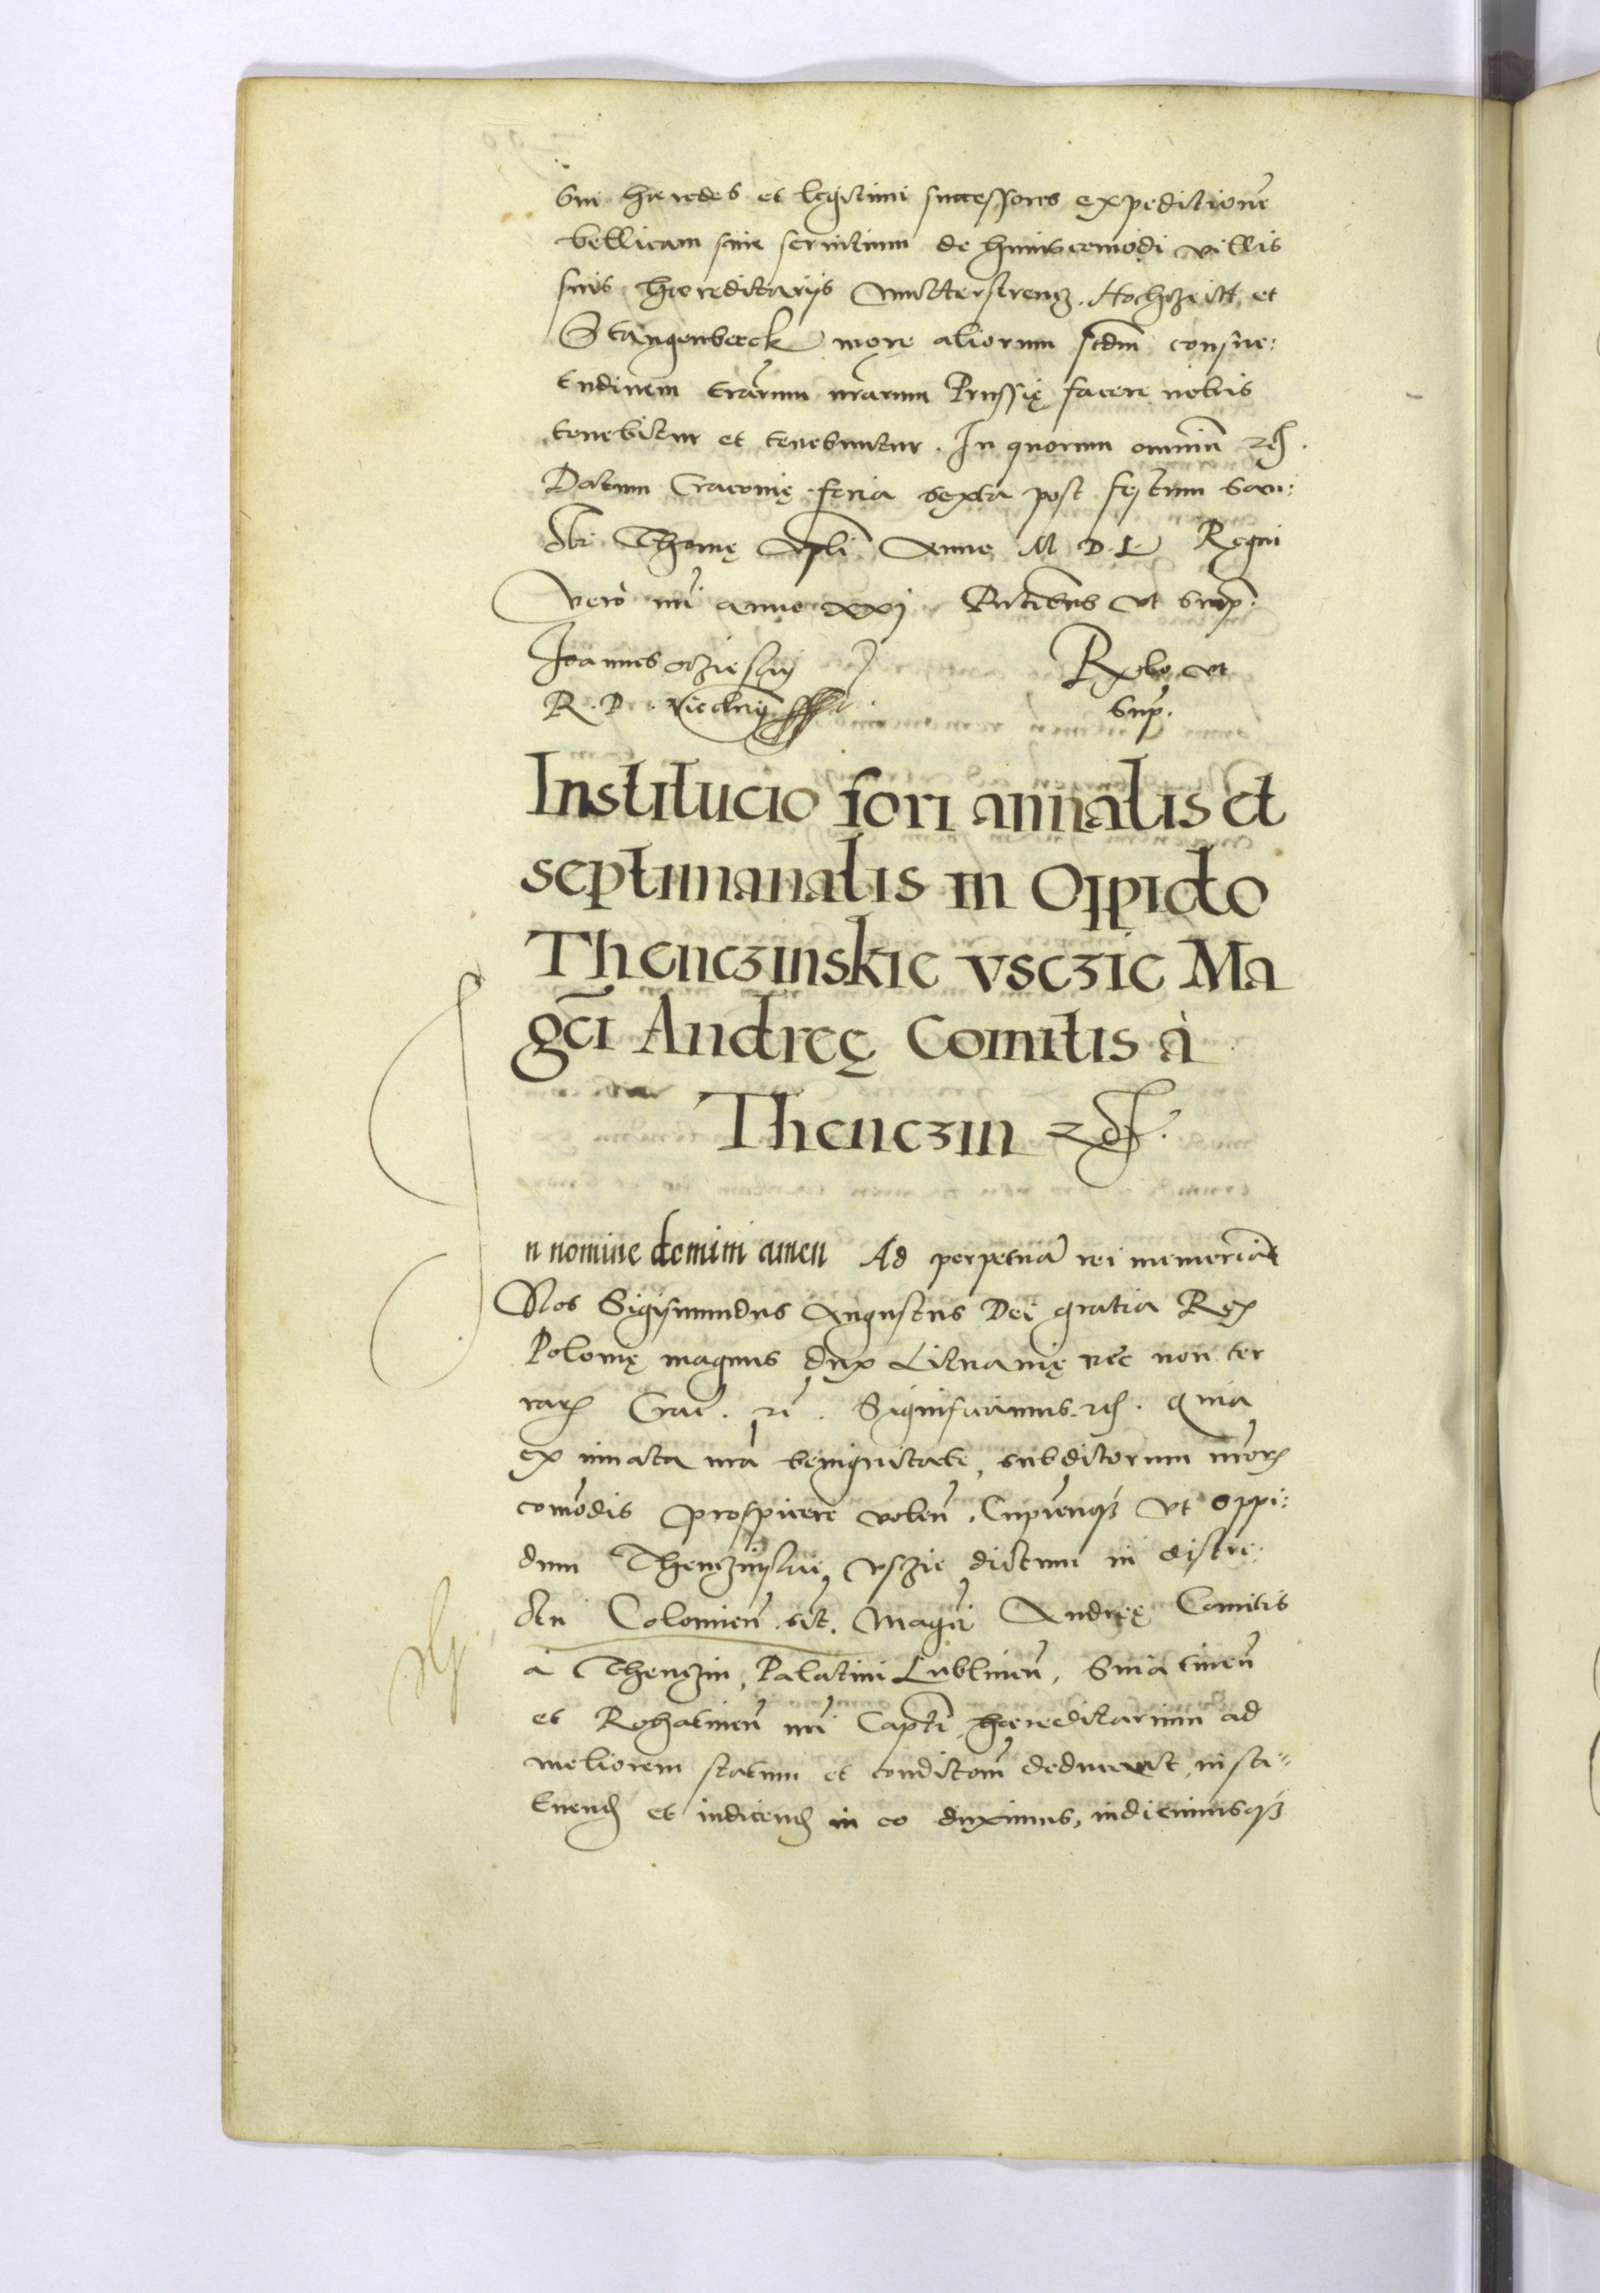 sui hæredes et legitimi successores expeditionē
bellicam siue seruitium de huiuscemodi villis
suis hæreditarijs Mutterstrenz. Hochzeitt, et
Stangenberck more aliorum scdm̄ consue:
tudinem trārum nrārum Prussię facere nobis
tenebitur et tenebuntur. In quorum omniū rc̃.
Datum Cracouię feria sexta post festum San:
cti Thomę Apli Anno M D. L Regni
vero nr̄i anno xxj. Pntibus vt supra.
Joannes oczieskij
R. P. Vicecancellarius
Relo vt
sup.
Institucio fori annalis et
septimanalis in Oppido
Thenczinskie vsczie Ma
gci Andreę Comitis à
Thenczin rc̃.
In nomine domini amen Ad perpetuā rei memoriam
Nos Sigismundus Augustus Dei gratia Rex
Polonię magnus dux Lituanię nec non ter
rarum Crac. rc̃. Significamus. rc̃. quia
ex innata nr̄a benignitate, subditorum nr̄orum
comodis prospicere volen̄. Cupienq3 vt oppi:
dum Thenczinskie vszie dictum in distri:
ctu Colomien̄. sit. Magci Andreę Comitis
à Thenczin, Palatini Lublinen̄, Sniatinen̄
et Rohatinen̄ nr̄i Capti hæreditarium ad
meliorem statum et conditom̄ deduceret, insti:
tuend et indicend in eo duximus, indicimusq3